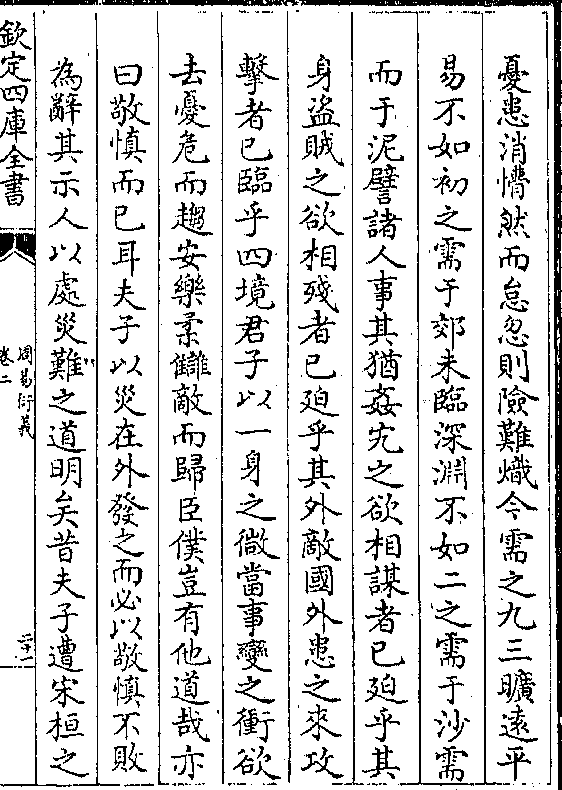 憂患消懵然而怠忽則險難熾今需之九三曠遠平
易不如初之需于郊未臨深淵不如二之需于沙需
而于泥譬諸人事其猶姦宄之欲相謀者已廹乎其
身盜賊之欲相殘者已廹乎其外敵國外患之來攻
擊者已臨乎四境君子以一身之微當事變之衝欲
去憂危而趨安樂柔讎敵而歸臣僕豈有他道哉亦
曰敬慎而已耳夫子以災在外發之而必以敬慎不敗
為辭其示人以處災難之道明矣昔夫子遭宋桓之
欽定四庫全書
周易衍義
卷二
二十一